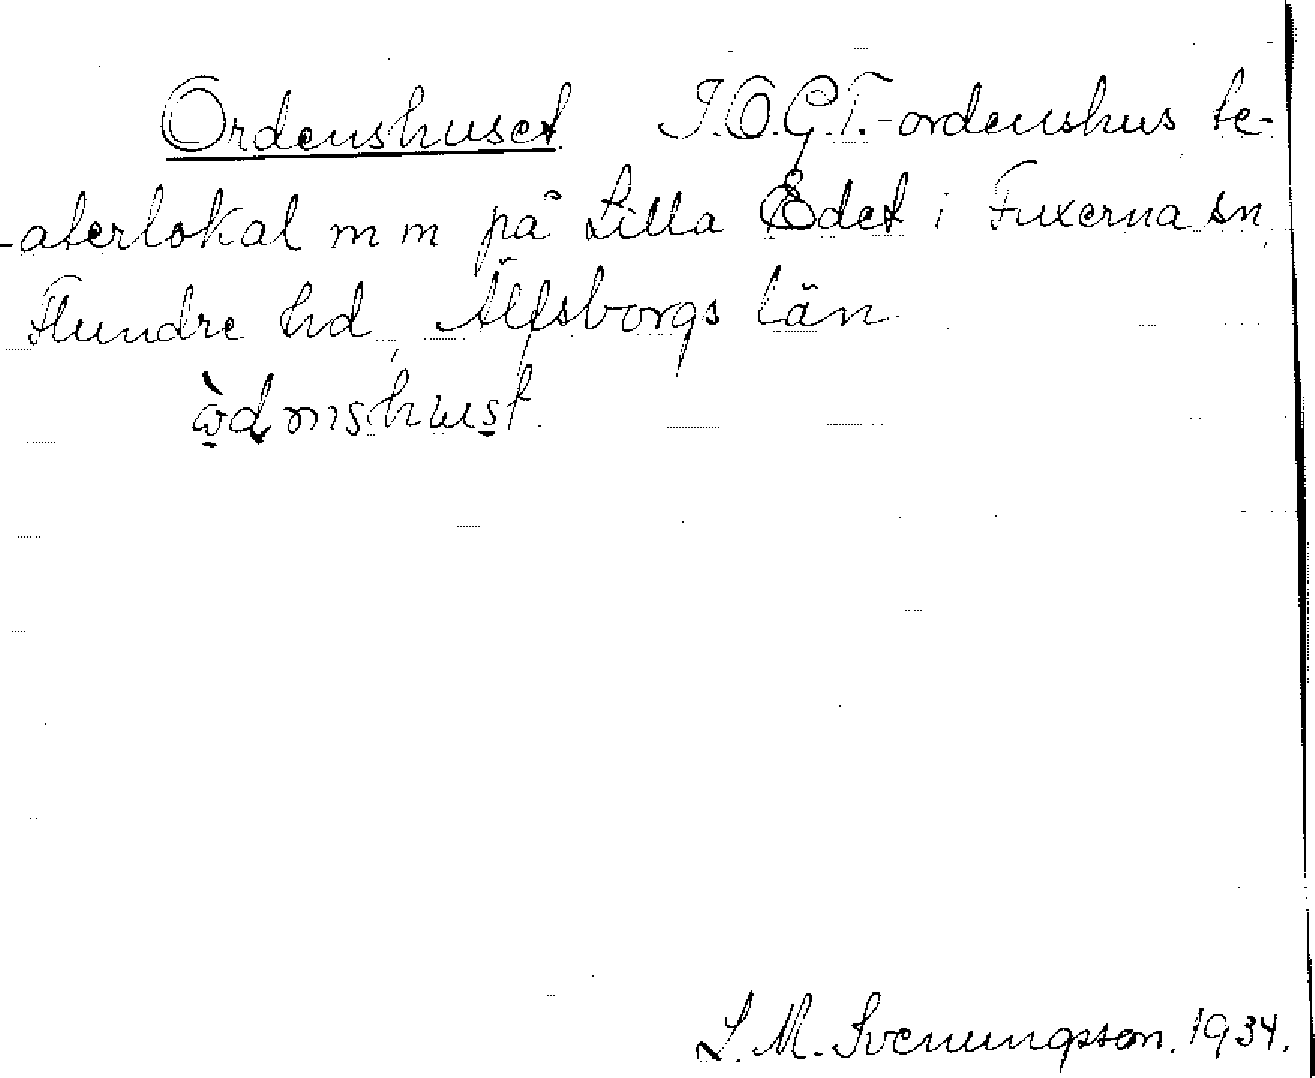 Ordenshuset I.O.G.T.-ordenshus te-
-aterlokal m m på Lilla Edet i Fuxerna sn,
Flundre hd, Älfsborgs län
L. M. Svenungsson. 1934.